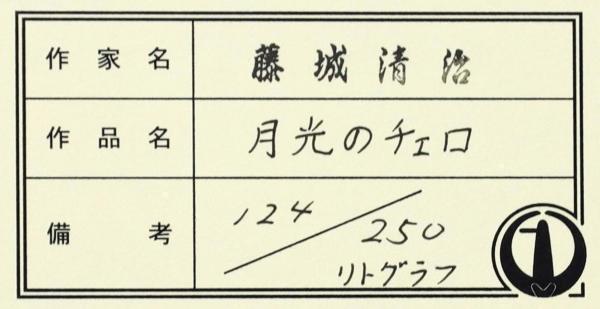 作家名 藤城清治
作品名 月光のチェロ
備考 124/250
リトグラフ